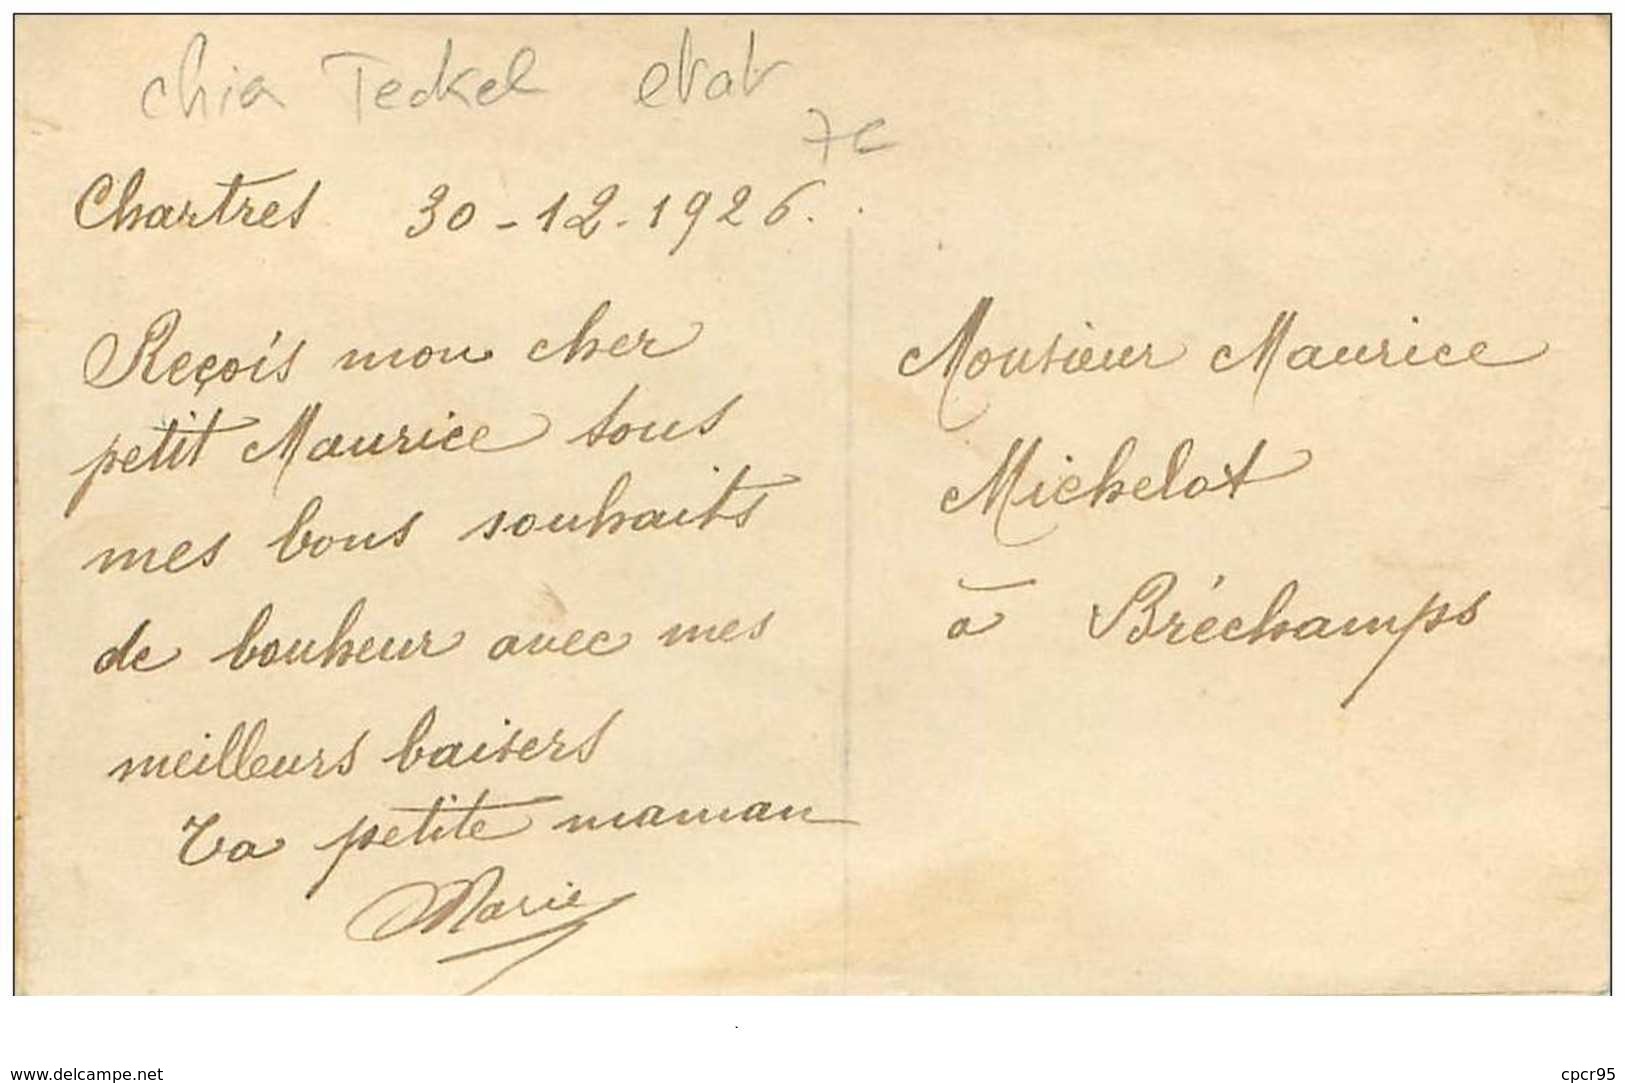 chia Teckel etat
7c
Chartres 30-12-1926.
Reçois mon cher
petit Maurice tous
mes bons souhaits
de bonheur avec mes
meilleurs baisers
Ta petite maman
Marie
Monsieur Maurice
Michelot
à Bréchamps
www.delcampe.net
cpcr95